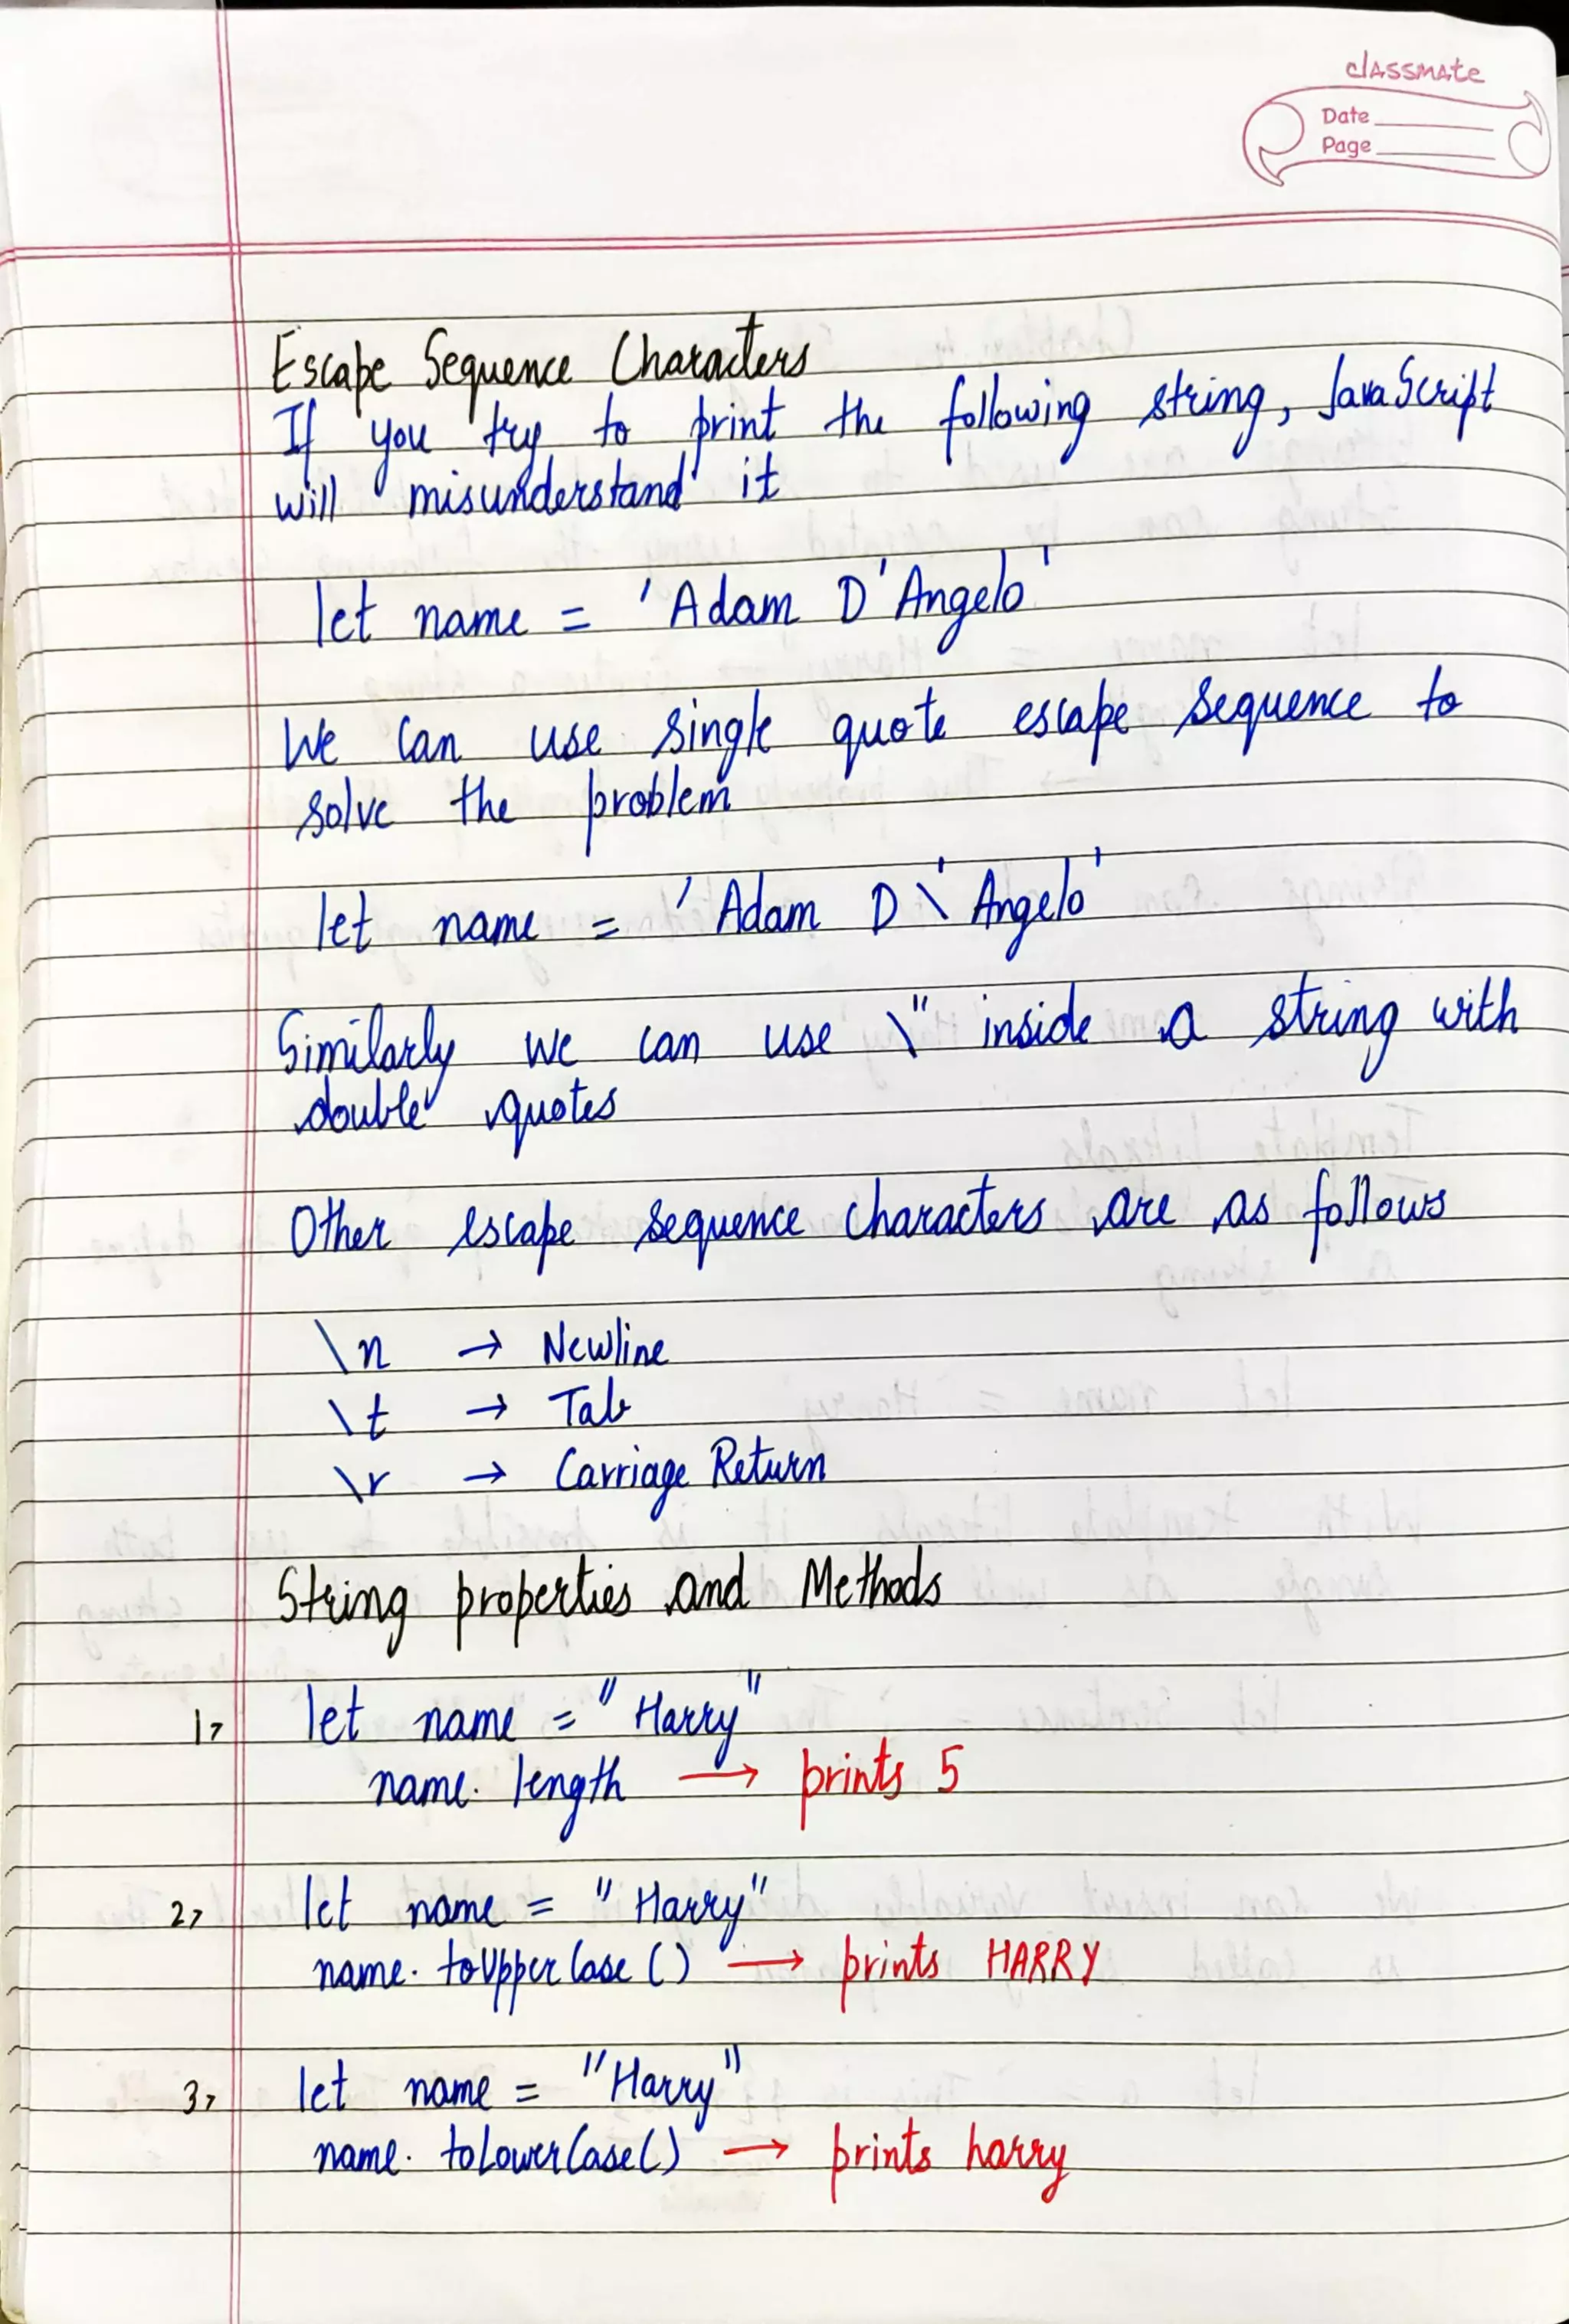 classmate
Date
Page
Escape Sequence Characters
If you try to print the following string, JavaScript
will misunderstand it
let name = 'Adam D'Angelo'
We can use single quote escape sequence to
solve the problem
let name = 'Adam D\'Angelo'
Similarly we can use \" inside a string with
double quotes
Other escape sequence characters are as follows
\n → Newline
\t → Tab
\r → Carriage Return
String properties and Methods
1> let name = "Harry"
name.length → prints 5
2> let name = "Harry"
name.toUpperCase() → prints HARRY
3> let name = "Harry"
name.toLowerCase() → prints harry